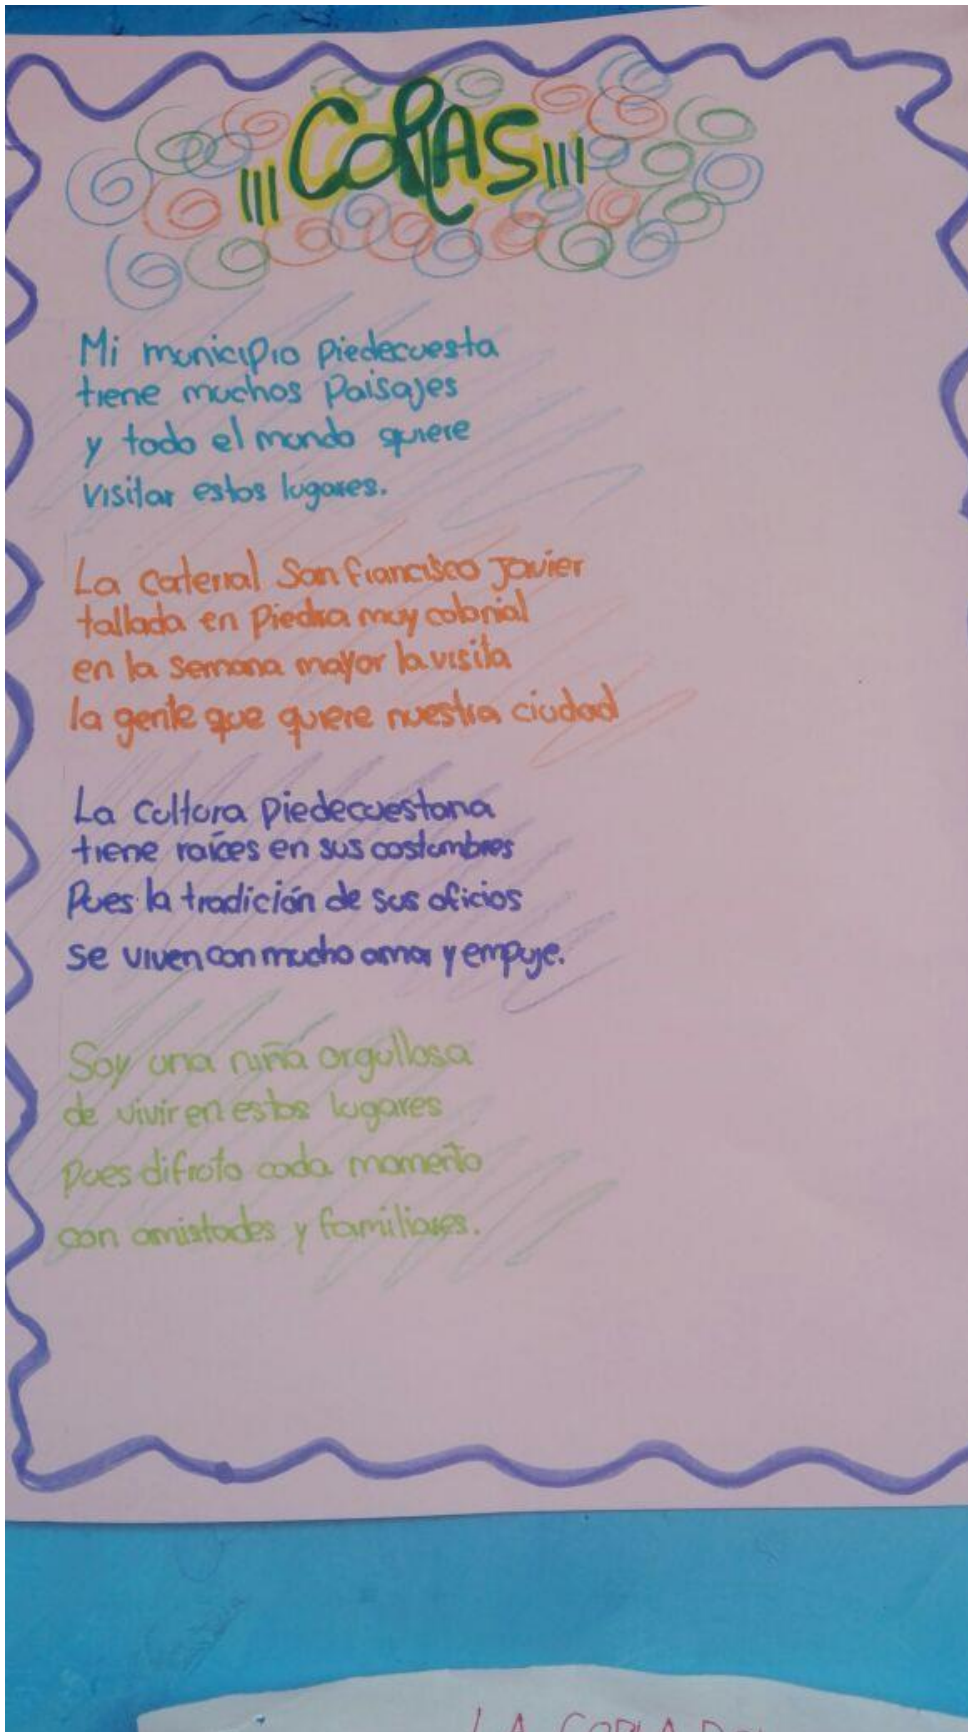 ¡¡¡COPLAS!!!
Mi municipio piedecuesta
tiene muchos paisajes
y todo el mundo quiere
visitar estos lugares.
La caterral San francisco Javier
tallada en piedra muy colonial
en la semana mayor la visita
la gente que quiere nuestra ciudad
La cultura piedecuestana
tiene raíces en sus costumbres
Pues la tradición de sus oficios
se viven con mucho amor y empuje.
Soy una niña orgullosa
de vivir en estos lugares
pues difruto cada momento
con amistades y familiares.
LA COPLA